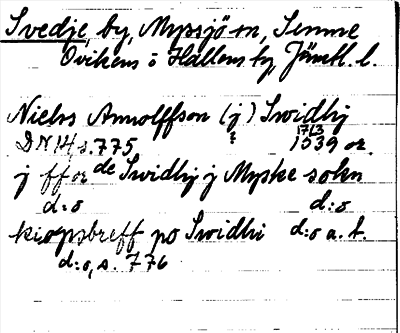 Svedje by, Myssjö sn, Sunne
Ovikens o Hallens tg, Jämtl. l.
Niels Anvolffson (j) Swidhij
DN 14, s. 775 1713 1539 or.
j ffor de Swidhij j Myske sokn
d:o d:o
kiøpsbreff po Swidhi d:o a.t.
d:o, s. 776